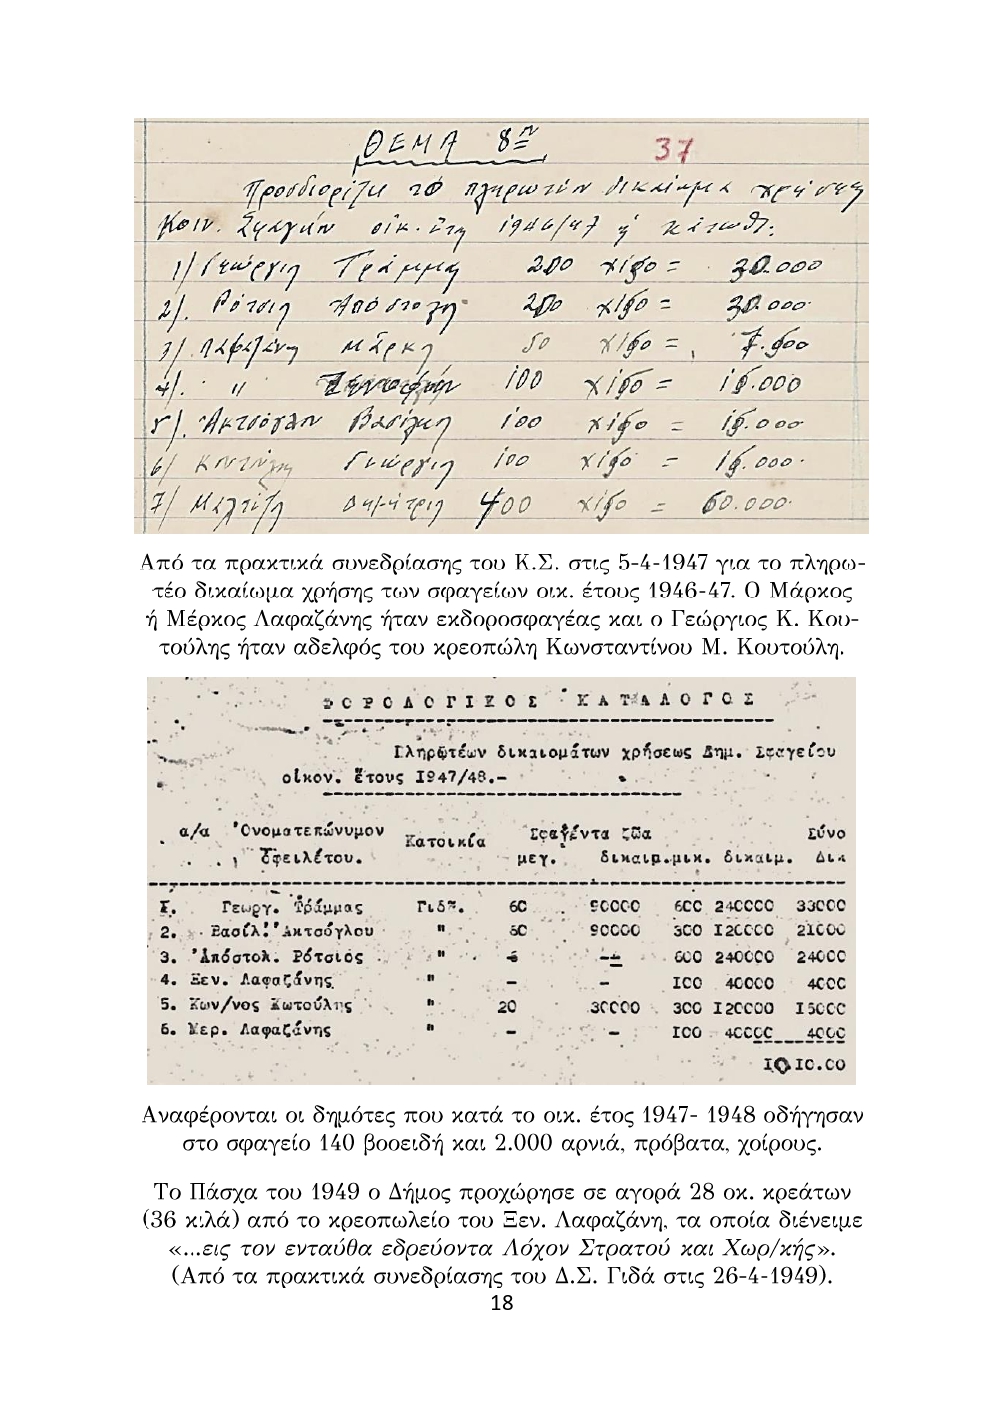 ΘΕΜΑ 8ον 37
Προσδιορίζει το πληρωτέον δικαίωμα χρήσεως
Κοιν. Σφαγείων οικ. έτη 1946/47 ή κάτωθι:
1) Γεώργιος Τράμμας 200 χιλ = 30.000
2). Ρότσιος Απόστολος 200 χιλ = 30.000
3) Λαφαζάνης Μάρκος 50 = 7.500
4). " 100 = 15.000
5). Ακτσόγλου Βασίλης 100 = 15.000
6) Γεώργιος 100 = 15.000
7) Δημήτριος 400 = 60.000
Από τα πρακτικά συνεδρίασης του Κ.Σ. στις 5-4-1947 για το πληρω-
τέο δικαίωμα χρήσης των σφαγείων οικ. έτους 1946-47. Ο Μάρκος
ή Μέρκος Λαφαζάνης ήταν εκδοροσφαγέας και ο Γεώργιος Κ. Κου-
τούλης ήταν αδελφός του κρεοπώλη Κωνσταντίνου Μ. Κουτούλη.
ΦΟΡΟΛΟΓΙΚΟΣ ΚΑΤΑΛΟΓΟΣ
Πληρωτέων δικαιομάτων χρήσεως Δημ. Σφαγείου
οίκον. ἔτους 1947/48.-
α/α Ὀνοματεπώνυμον Κατοικία Σφαγέντα ζῶα Σύνο
ὀφειλέτου. μεγ. δικαιμ. μικ. δικαιμ. Δικ
1. Γεωργ. Τράμμας Γιδᾶ. 60 90000 600 240000 33000
2. Βασίλ. Ἀκτσόγλου " 60 90000 300 120000 21000
3. Ἀπόστολ. Ρότσιος " - - 600 240000 24000
4. Ξεν. Λαφαζάνης " - - 100 40000 4000
5. Κων/νος Κωτούλης " 20 30000 300 120000 15000
6. Μερ. Λαφαζάνης " - - 100 40000 4000
Αναφέρονται οι δημότες που κατά το οικ. έτος 1947- 1948 οδήγησαν
στο σφαγείο 140 βοοειδή και 2.000 αρνιά, πρόβατα, χοίρους.
Το Πάσχα του 1949 ο Δήμος προχώρησε σε αγορά 28 οκ. κρεάτων
(36 κιλά) από το κρεοπωλείο του Ξεν. Λαφαζάνη, τα οποία διένειμε
«...εις τον ενταύθα εδρεύοντα Λόχον Στρατού και Χωρ/κής».
(Από τα πρακτικά συνεδρίασης του Δ.Σ. Γιδά στις 26-4-1949).
18